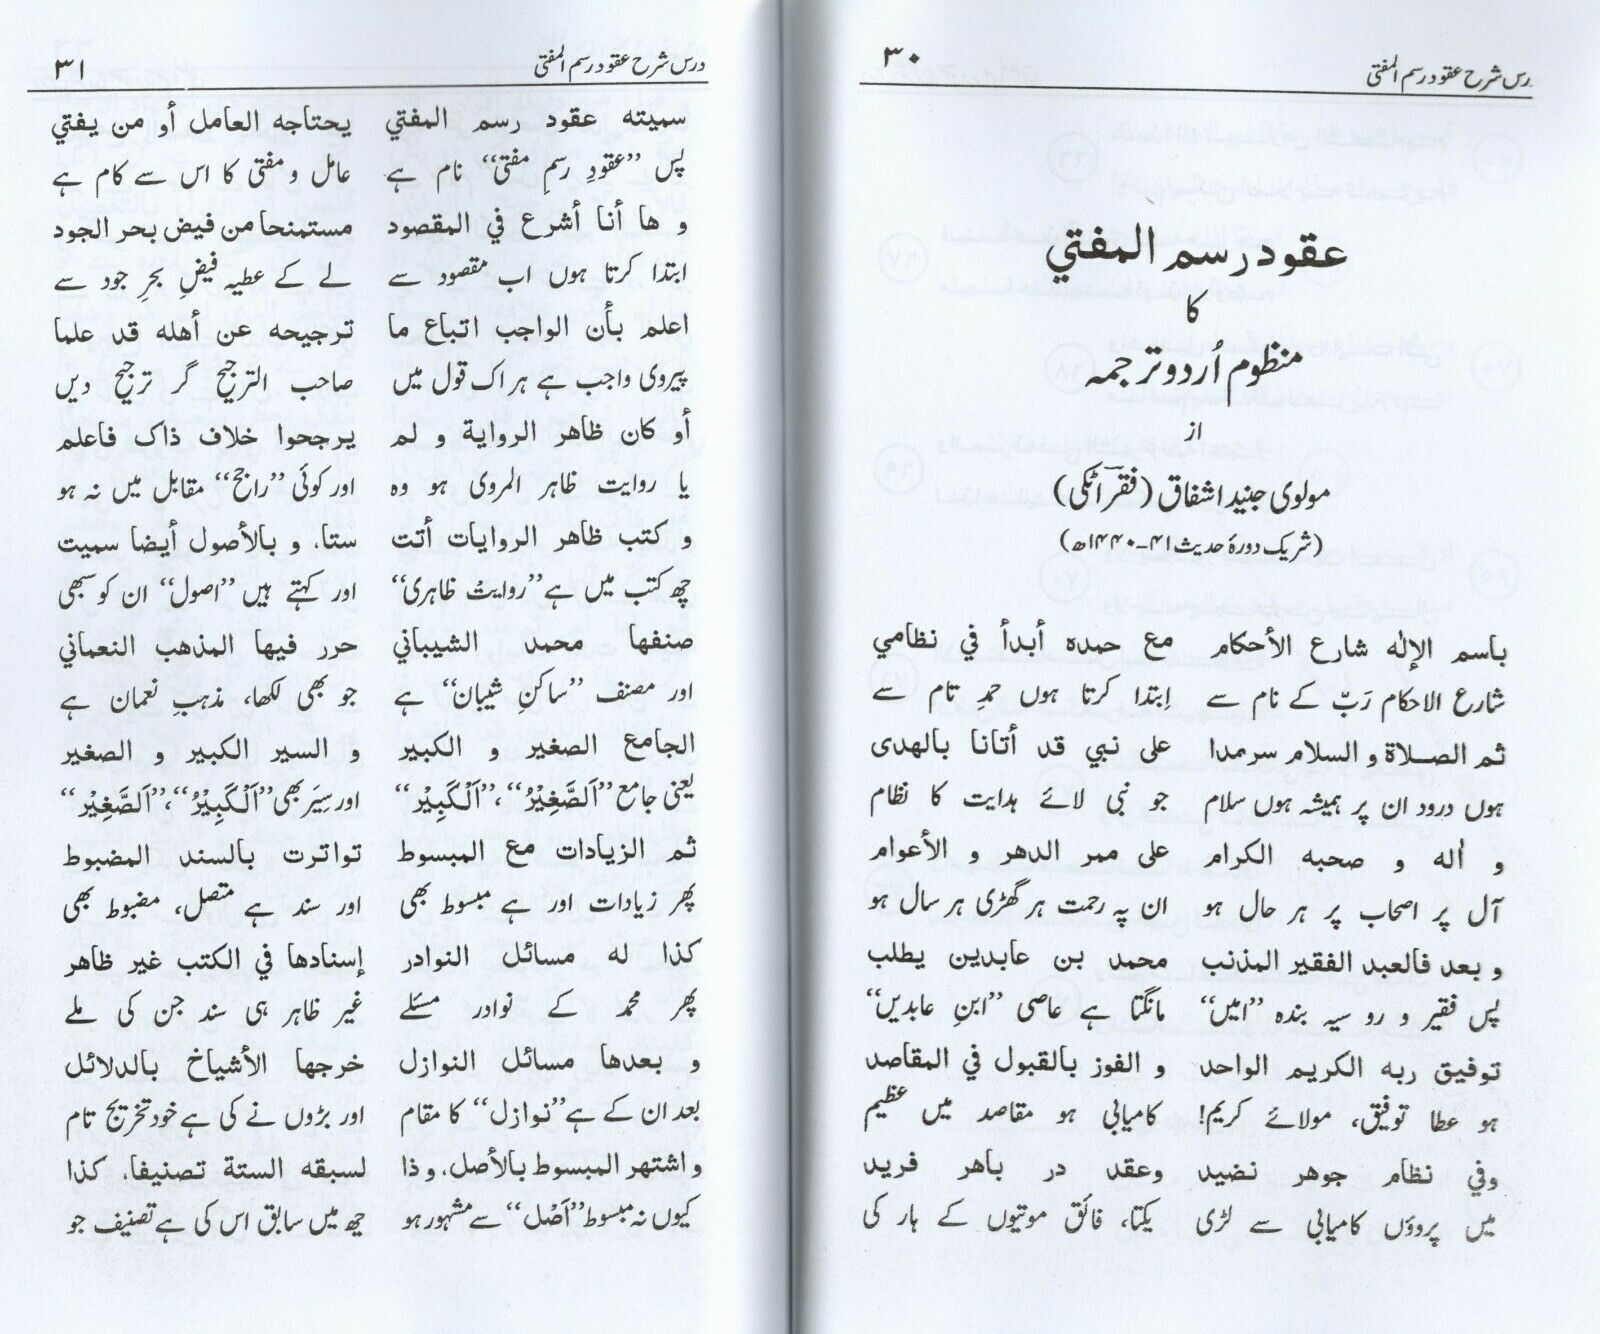 درس شرح عقود رسم المفتی ۳۰
عقود رسم المفتي
کا
منظوم اُردو ترجمہ
از
مولوی جنید اشفاق (فقرؔ اٹکی)
(شریک دورۂ حدیث ۴۱-۱۴۴۰ھ)
باسم الإلٰه شارع الأحكام مع حمده أبدأ في نظامي
شارع الاحکام رَبّ کے نام سے اِبتدا کرتا ہوں حمدِ تام سے
ثم الصلاة و السلام سرمدا على نبي قد أتانا بالهدى
ہوں درود ان پر ہمیشہ ہوں سلام جو نبی لائے ہدایت کا نظام
و اٰله و صحبه الكرام على ممر الدهر و الأعوام
آل پر اصحاب پر ہر حال ہو ان پہ رحمت ہر گھڑی ہر سال ہو
و بعد فالعبد الفقير المذنب محمد بن عابدين يطلب
پس فقیر و رو سیہ بندہ ”امیں“ مانگتا ہے عاصی ”ابنِ عابدیں“
توفيق ربه الكريم الواحد و الفوز بالقبول في المقاصد
ہو عطا توفیق، مولائے کریم! کامیابی ہو مقاصد میں عظیم
وفي نظام جوهر نضيد وعقد در باهر فريد
میں پروؤں کامیابی سے لڑی یکتا، فائق موتیوں کے ہار کی
درس شرح عقود رسم المفتی ۳۱
سميته عقود رسم المفتي يحتاجه العامل أو من يفتي
پس ”عقودِ رسمِ مفتی“ نام ہے عامل و مفتی کا اس سے کام ہے
و ها أنا أشرع في المقصود مستمنحا من فيض بحر الجود
ابتدا کرتا ہوں اب مقصود سے لے کے عطیہ فیضِ بحرِ جود سے
اعلم بأن الواجب اتباع ما ترجيحه عن أهله قد علما
پیروی واجب ہے ہر اک قول میں صاحب الترجیح گر ترجیح دیں
أو كان ظاهر الرواية و لم يرجحوا خلاف ذاك فاعلم
یا روایت ظاہر المروی ہو وہ اور کوئی ”راجح“ مقابل میں نہ ہو
و كتب ظاهر الروايات أتت ستا، و بالأصول أيضا سميت
چھ کتب میں ہے ”روایتُ ظاہری“ اور کہتے ہیں ”اصول“ ان کو سبھی
صنفها محمد الشيباني حرر فيها المذهب النعماني
اور مصنف ”ساکنِ شیبان“ ہے جو بھی لکھا، مذہبِ نعمان ہے
الجامع الصغير و الكبير و السير الكبير و الصغير
یعنی جامع ”اَلصَّغِیْرُ“، ”اَلْکَبِیْر“ اور سِیَر بھی ”اَلْکَبِیْرُ“، ”اَلصَّغِیْر“
ثم الزيادات مع المبسوط تواترت بالسند المضبوط
پھر زیادات اور ہے مبسوط بھی اور سند ہے متصل، مضبوط بھی
كذا له مسائل النوادر إسنادها في الكتب غير ظاهر
پھر محمد کے نوادر مسئلے غیر ظاہر ہی سند جن کی ملے
و بعدها مسائل النوازل خرجها الأشياخ بالدلائل
بعد ان کے ہے ”نوازل“ کا مقام اور بڑوں نے کی ہے خود تخریج تام
و اشتهر المبسوط بالأصل، و ذا لسبقه الستة تصنيفا، كذا
کیوں نہ مبسوط ”اَصْل“ سے مشہور ہو چھ میں سابق اس کی ہے تصنیف جو